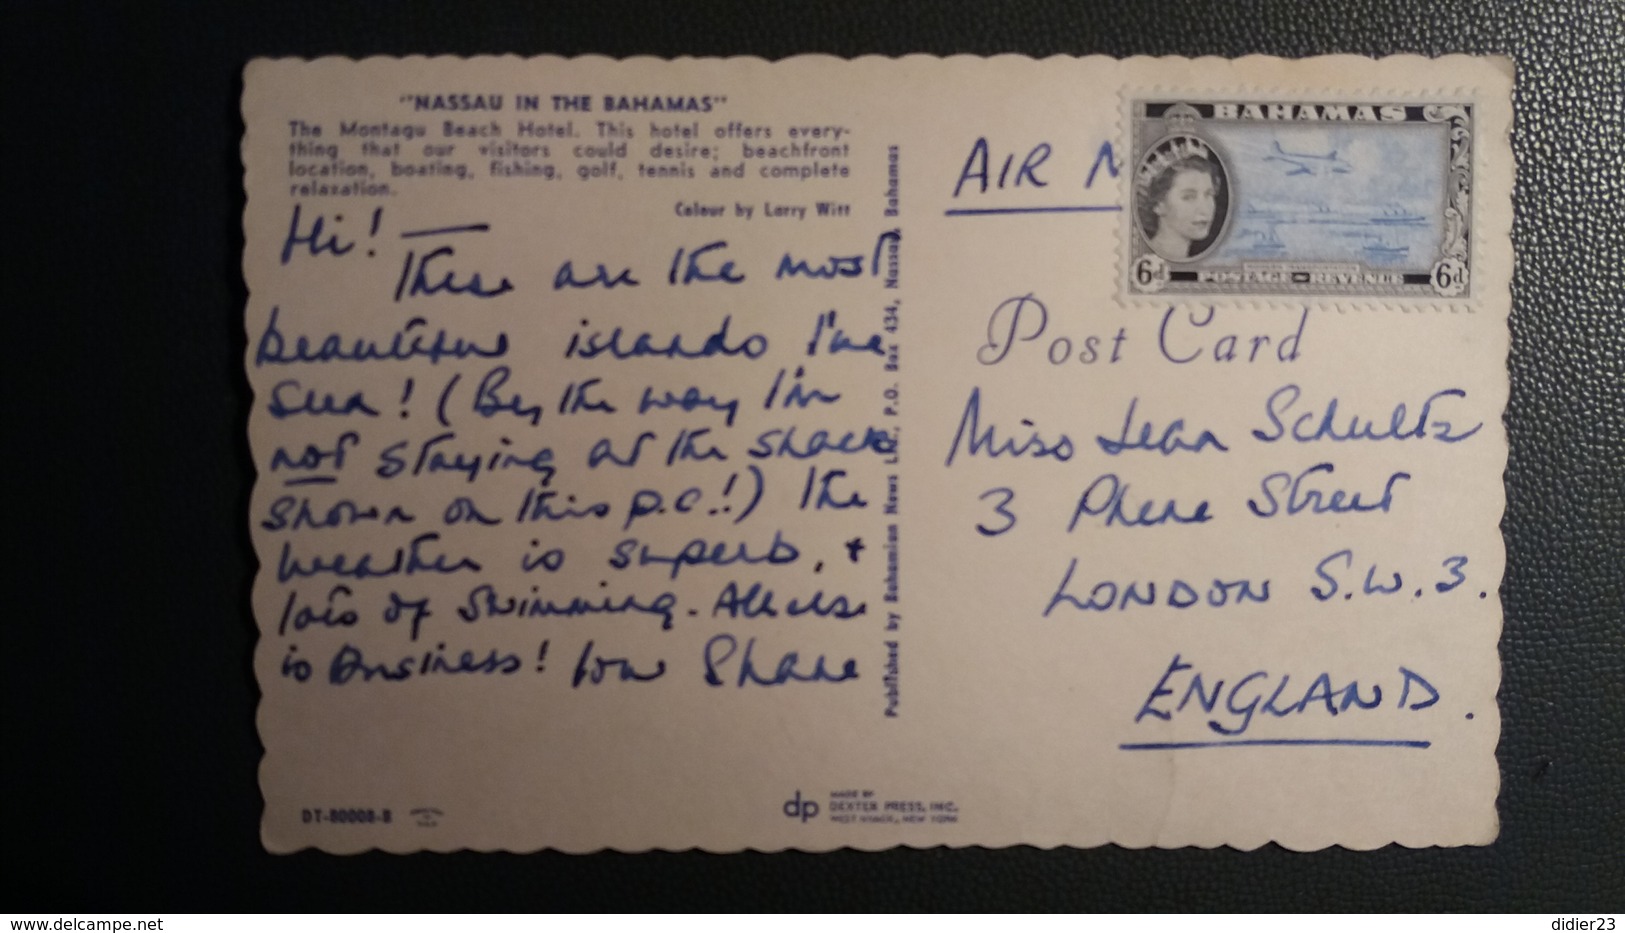 "NASSAU IN THE BAHAMAS"
The Montagu Beach Hotel. This hotel offers every-
thing that our visitors could desire; beachfront
location, boating, fishing, golf, tennis and complete
relaxation.
Colour by Larry Witt
Hi! —
These are the most
beautiful islands I've
seen! (By the way I'm
not staying at the shack
shown on this p.c.!) The
weather is superb, +
lots of swimming. All else
is business! Love Shane
DT-80008-B
Published by Bahamian News Ltd., P.O. Box 434, Nassau, Bahamas
dp
MADE BY
DEXTER PRESS, INC.
WEST NYACK, NEW YORK
AIR M
BAHAMAS
6d
POSTAGE REVENUE
6d
Post Card
Miss Jean Schultz
3 Phene Street
LONDON S.W.3.
ENGLAND.
www.delcampe.net
didier23